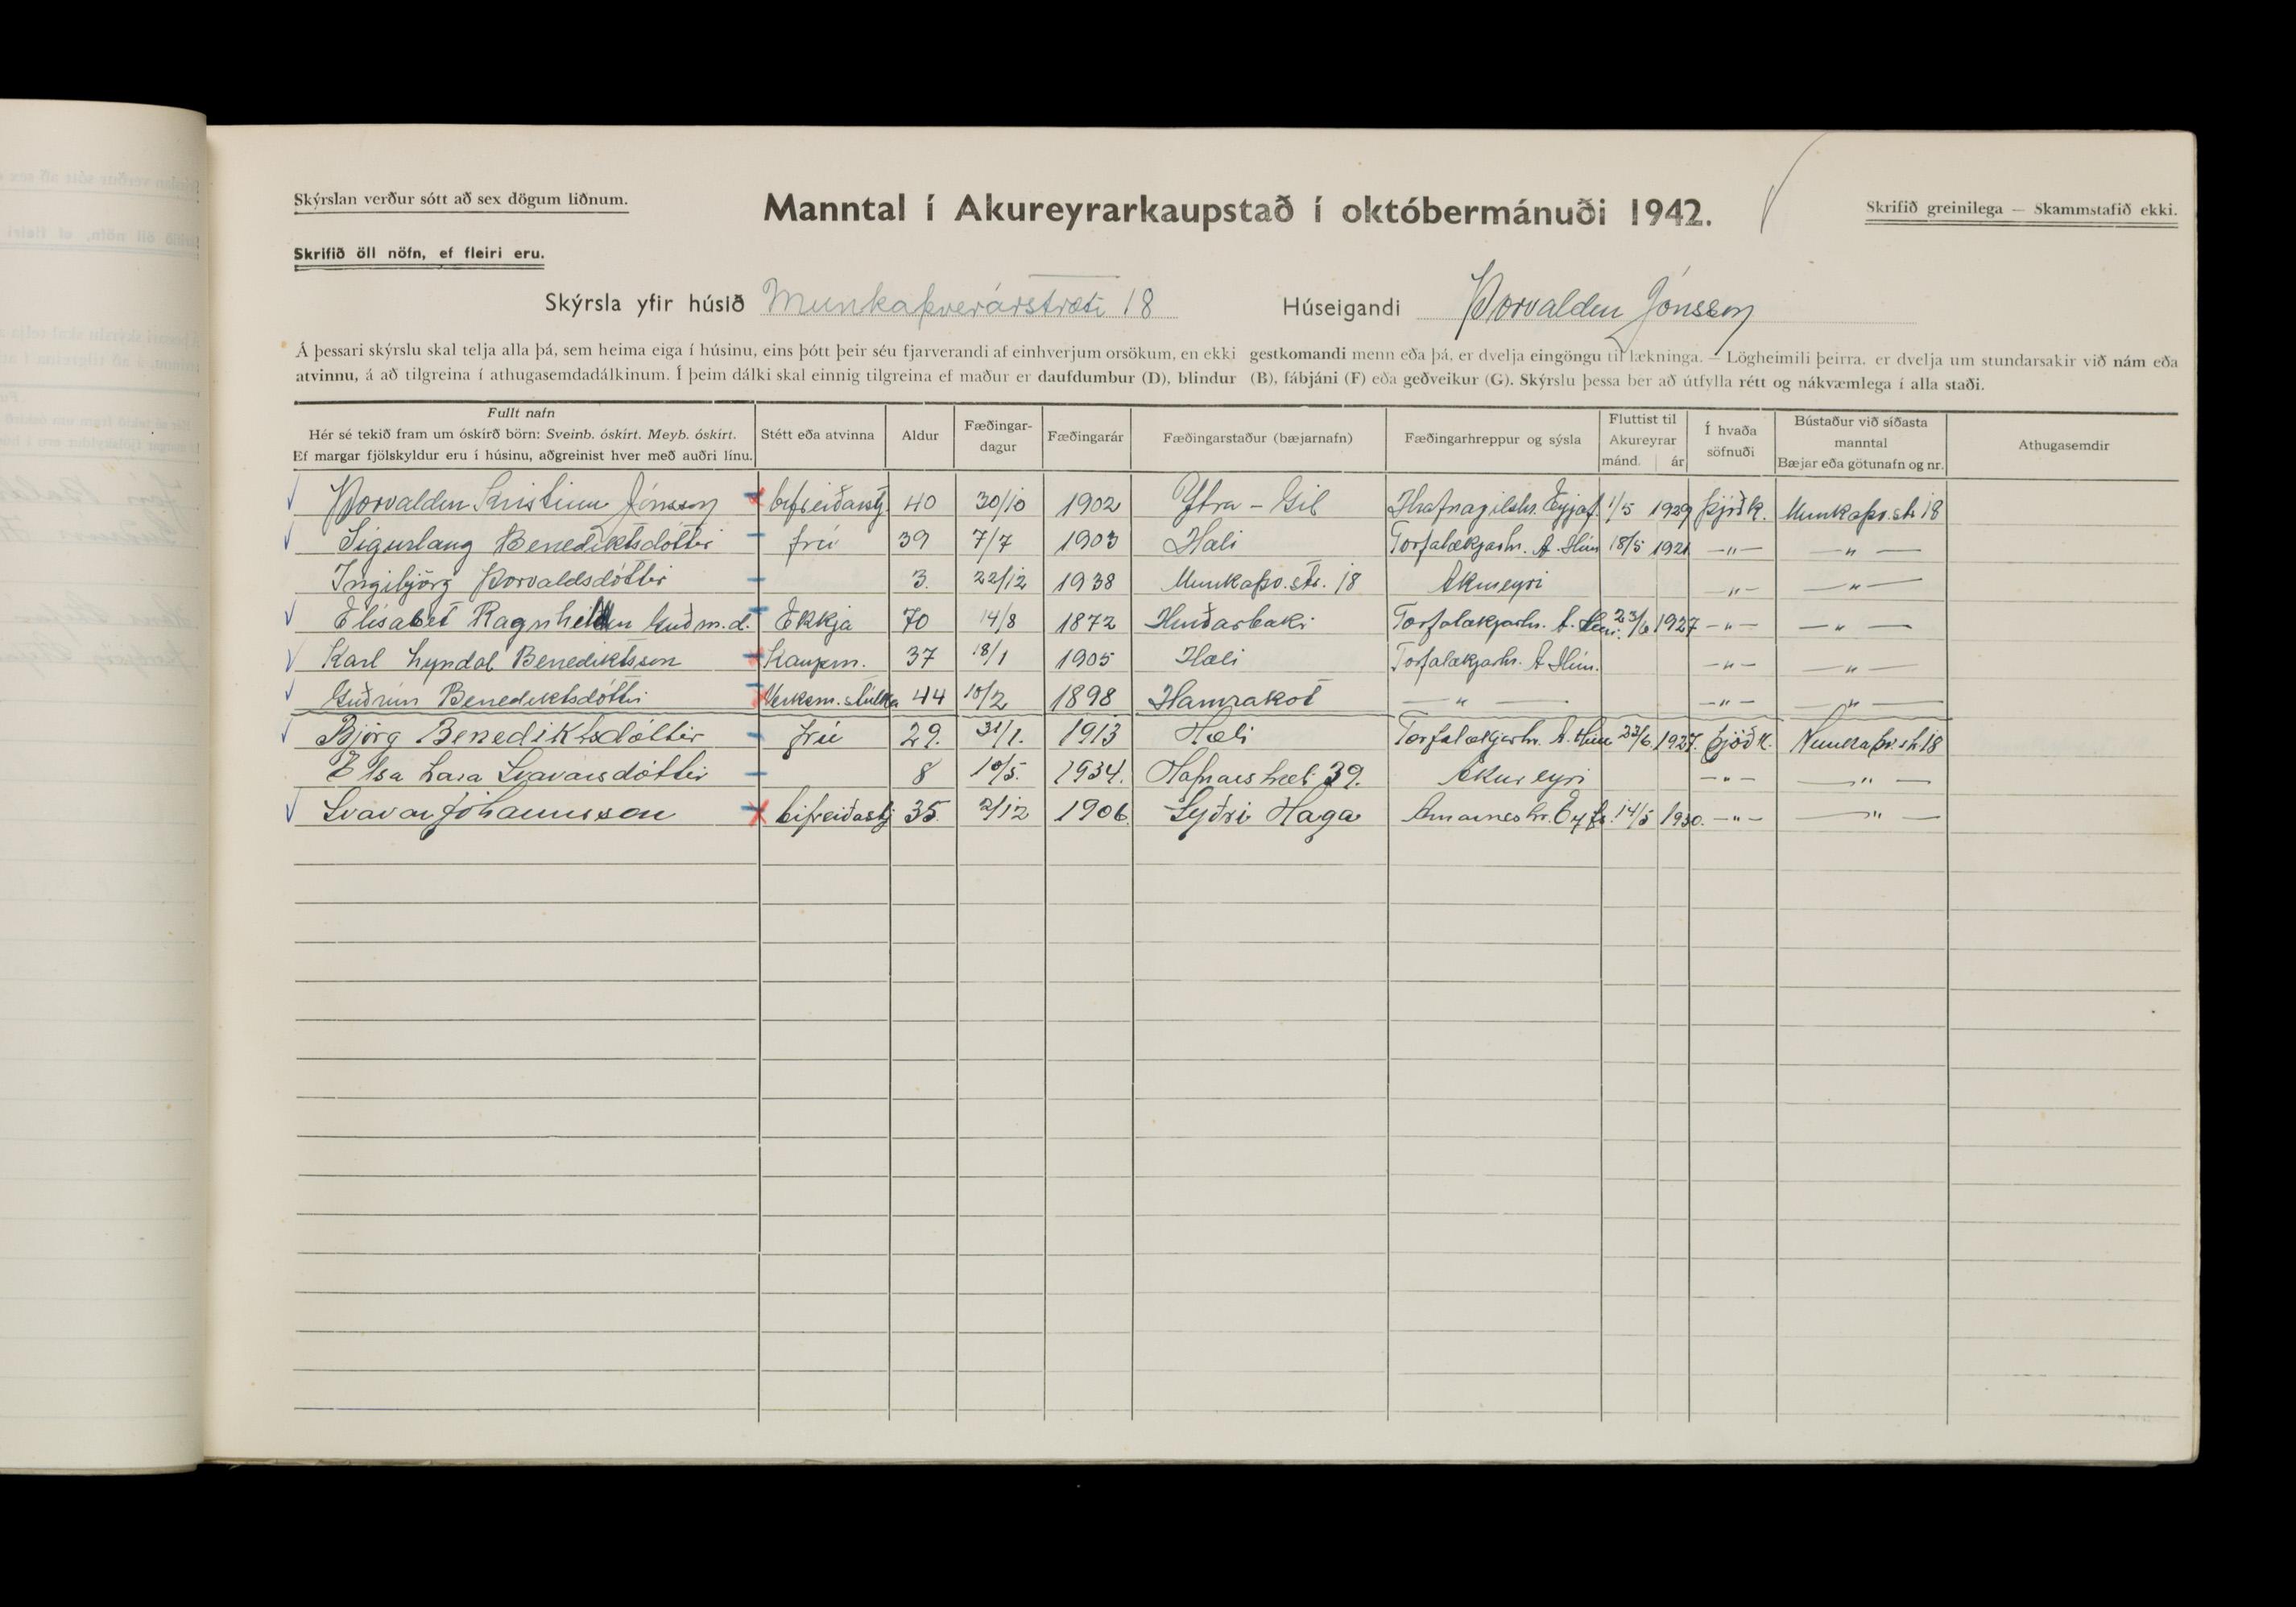 Skýrslan verður sótt að sex dögum liðnum.
Manntal í Akureyrarkaupstað í októbermánuði 1942.
Skrifið greinilega — Skammstafið ekki.
Skrifið öll nöfn, ef fleiri eru.
Skýrsla yfir húsið Munkaþverárstræti 18 Húseigandi Þorvaldur Jónsson
Á þessari skýrslu skal telja alla þá, sem heima eiga í húsinu, eins þótt þeir séu fjarverandi af einhverjum orsökum, en ekki gestkomandi menn eða þá, er dvelja eingöngu til lækninga. — Lögheimili þeirra, er dvelja um stundarsakir við nám eða
atvinnu, á að tilgreina í athugasemdadálkinum. Í þeim dálki skal einnig tilgreina ef maður er daufdumbur (D), blindur (B), fábjáni (F) eða geðveikur (G). Skýrslu þessa ber að útfylla rétt og nákvæmlega í alla staði.
Fullt nafn
Hér sé tekið fram um óskírð börn: Sveinb. óskírt. Meyb. óskírt.
Ef margar fjölskyldur eru í húsinu, aðgreinist hver með auðri línu.
Stétt eða atvinna
Aldur
Fæðingar-
dagur
Fæðingarár
Fæðingarstaður (bæjarnafn)
Fæðingarhreppur og sýsla
Fluttist til
Akureyrar
mánd. ár
Í hvaða
söfnuði
Bústaður við síðasta
manntal
Bæjar eða götunafn og nr.
Athugasemdir
Þorvaldur Kristinn Jónsson bifreiðarstj. 40 30/10 1902 Ytra-Gil Hrafnagilshr. Eyjaf. 1/5 1929 þjóðk. Munkaþv.str 18
Sigurlaug Benediktsdóttir frú 39 7/7 1903 Hæli Torfalækjarhr. A. Hún 18/5 1921 —"— —"—
Ingibjörg Þorvaldsdóttir 3. 22/12 1938 Munkaþv.str. 18 Akureyri —"— —"—
Elísabet Ragnheiður Guðm.d. Ekkja 70 14/8 1872 Torfalækjarhr. A. Hún. 23/6 1927 —"— —"—
Karl Lyndal Benediktsson Kaupm. 37 18/1 1905 Hæli Torfalækjarhr. A Hún. —"— —"—
Guðrún Benediktsdóttir Verksm. stúlka 44 10/2 1898 Hamrakot —"— —"— —"—
Björg Benediktsdóttir frú 29. 31/1. 1913 Hæli Torfalækjarhr. A. Hún 23/6. 1927. þjóðk. Munkaþv.str 18
Elsa Lára Svavarsdóttir 8 10/5. 1934. 39. Akureyri —"— —"—
Svavar Jóhannsson bifreiðastj 35. 2/12 1906. Syðri Haga Arnarneshr. Eyjf. 14/5 1930. —"— —"—